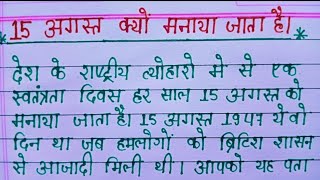 15 अगस्त क्यों मनाया जाता है।
देश के राष्ट्रीय त्योहारो मे से एक
स्वतंत्रता दिवस हर साल 15 अगस्त को
मनाया जाता है। 15 अगस्त 1947 ये वो
दिन था जब हमलोगों को ब्रिटिश शासन
से आजादी मिली थी। आपको यह पता